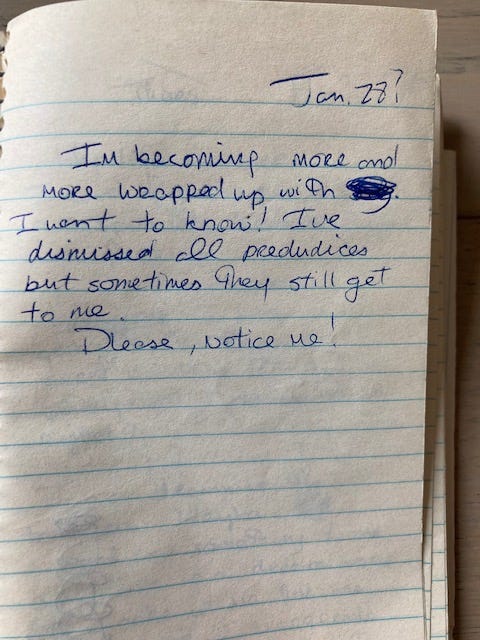 Jan. 28?
Im becoming more and
more wrapped up with
I want to know! I've
dismissed all predudices
but sometimes they still get
to me.
Please, notice me!